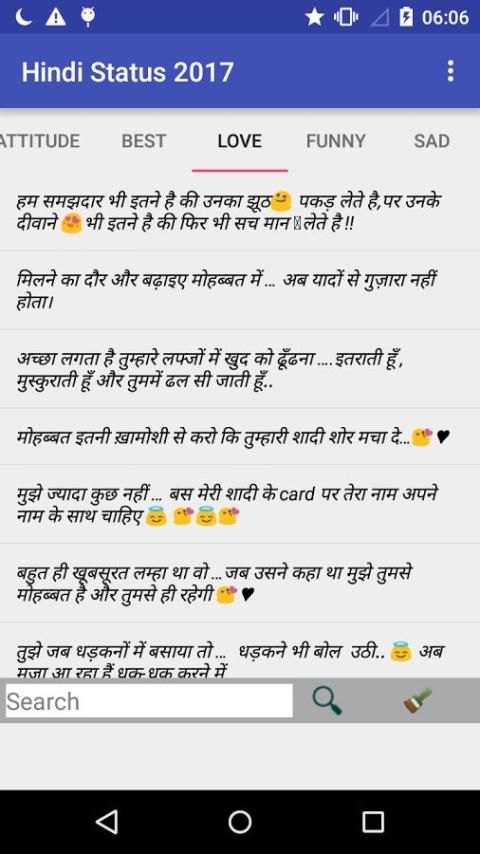 06:06
Hindi Status 2017
ATTITUDE BEST LOVE FUNNY SAD
हम समझदार भी इतने है की उनका झूठ🤗 पकड़ लेते है,पर उनके
दीवाने 😍 भी इतने है की फिर भी सच मान लेते है !!
मिलने का दौर और बढ़ाइए मोहब्बत में ... अब यादों से गुज़ारा नहीं
होता।
अच्छा लगता है तुम्हारे लफ्जों में खुद को ढूँढना ....इतराती हूँ ,
मुस्कुराती हूँ और तुममें ढल सी जाती हूँ..
मोहब्बत इतनी ख़ामोशी से करो कि तुम्हारी शादी शोर मचा दे...😘 ♥
मुझे ज्यादा कुछ नहीं ... बस मेरी शादी के card पर तेरा नाम अपने
नाम के साथ चाहिए 😇 😘😇😘
बहुत ही खूबसूरत लम्हा था वो ...जब उसने कहा था मुझे तुमसे
मोहब्बत है और तुमसे ही रहेगी 😘 ♥
तुझे जब धड़कनों में बसाया तो ... धड़कने भी बोल उठी.. 😇 अब
मजा आ रहा हैं धक-धक करने में
Search